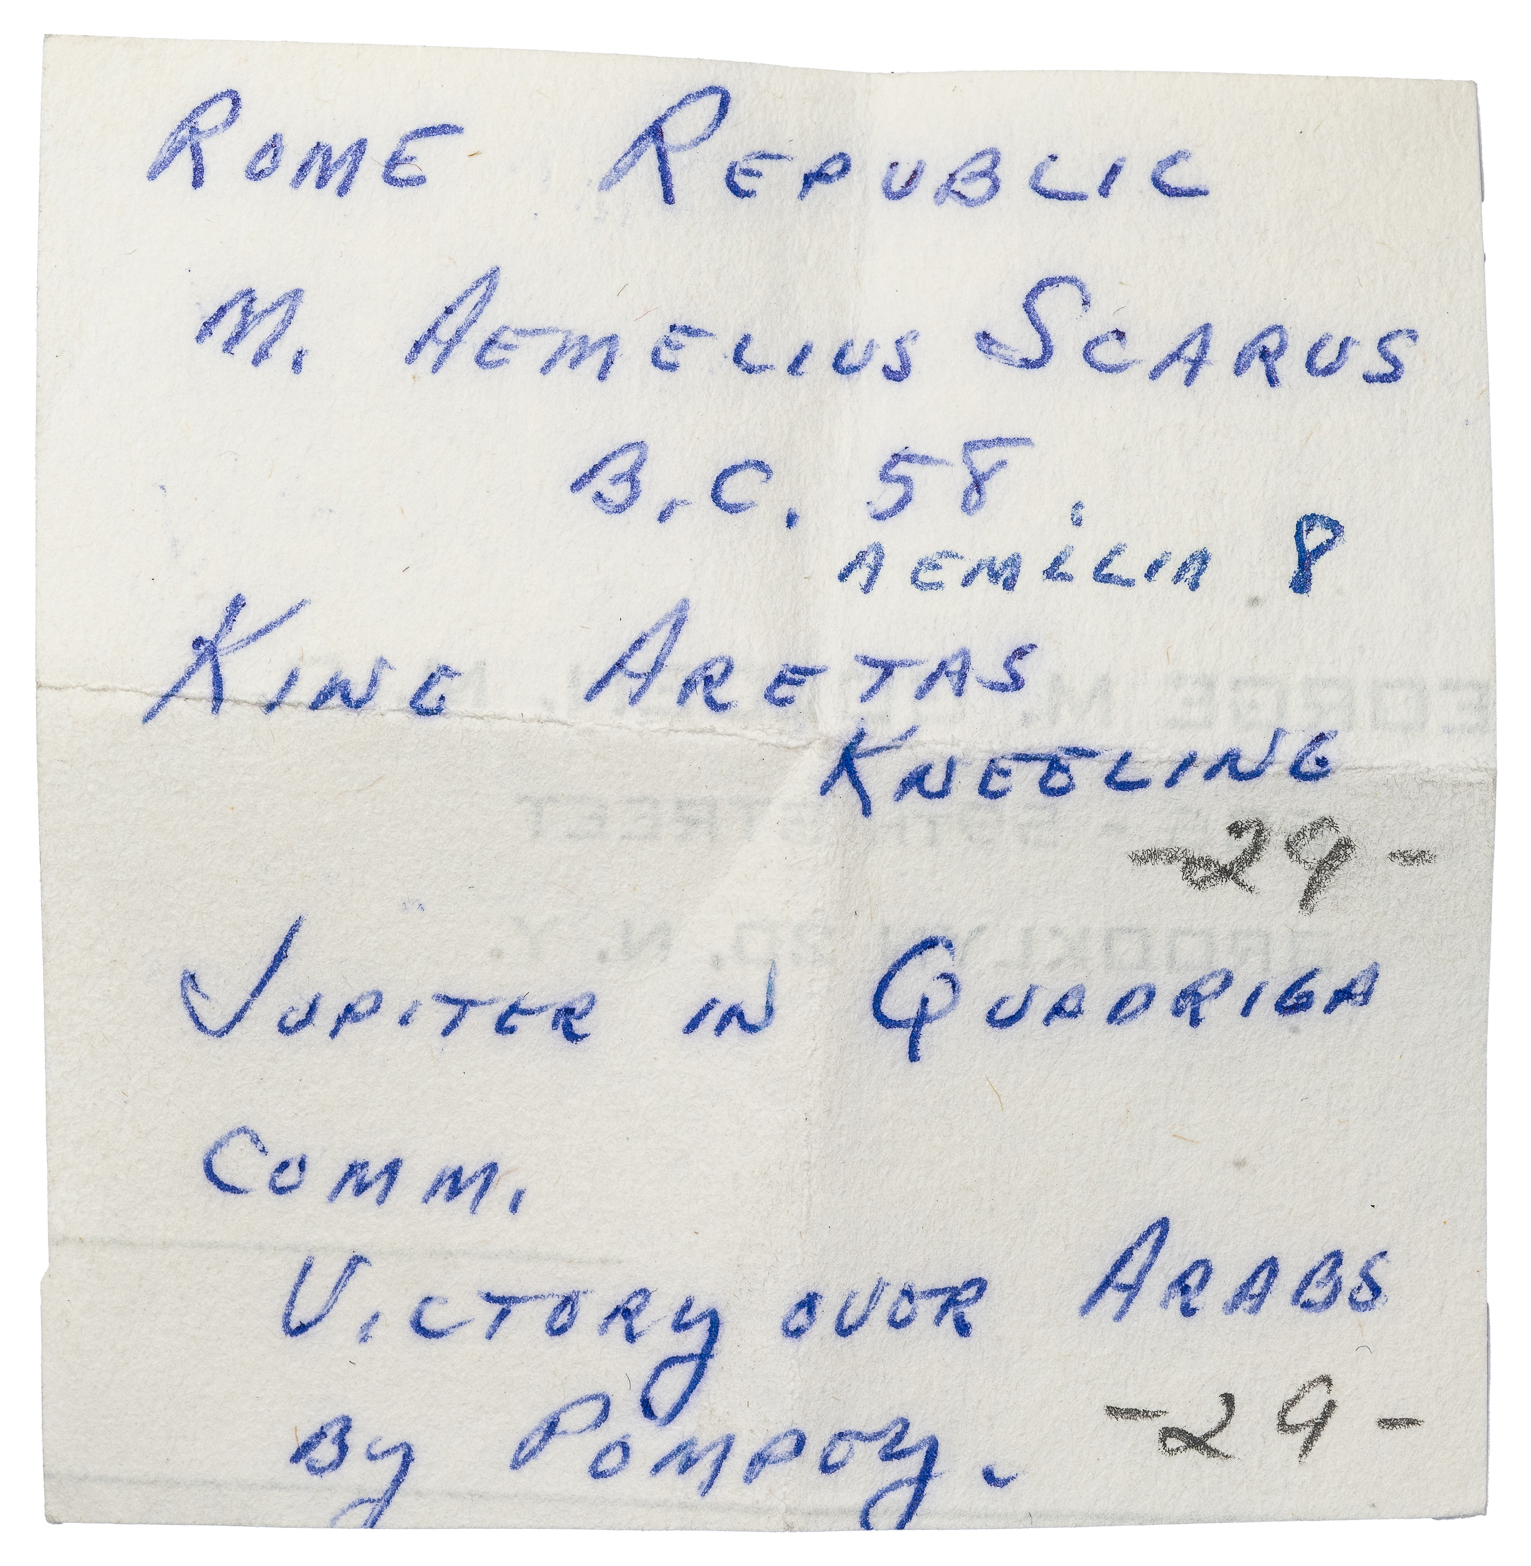 ROME REPUBLIC
M. AEMELIUS SCARUS
B.C. 58.
AEMILIA 8
KING ARETAS
KNEELING
-29-
JUPITER IN QUADRIGA
COMM.
VICTORY OVER ARABS
By POMPEY.
-29-
GEORGE M.
59TH STREET
BROOKLYN 20, N. Y.